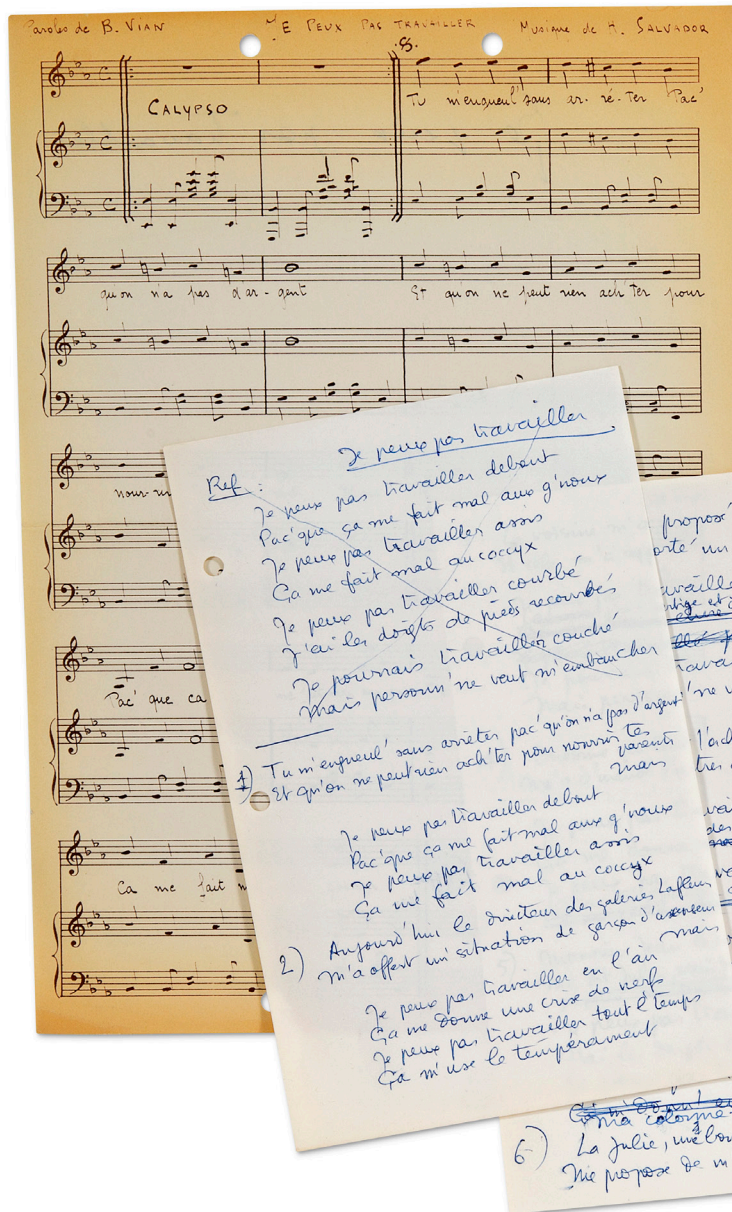 Paroles de B. VIAN JE PEUX PAS TRAVAILLER Musique de H. SALVADOR
CALYPSO
Tu m'engueul' sans ar- rê- ter Pac'
qu'on n'a pas d'ar- gent Et qu'on ne peut rien ach' ter pour
nour-ri
Pac' que ca
Ca me fait m
Je peux pas travailler
Ref :
Je peux pas travailler debout
Pac'que ça me fait mal aux g'noux
Je peux pas travailler assis
Ça me fait mal au coccyx
Je peux pas travailler courbé
J'ai les doigts de pieds recourbés
Je pourrais travailler couché
Mais personn' ne veut m'embaucher
1) Tu m'engueul' sans arrêter pac'qu'on n'a pas d'argent
Et qu'on ne peut rien ach'ter pour nourrir tes
parents
mais
Je peux pas travailler debout
Pac'que ça me fait mal aux g'noux
Je peux pas travailler assis
Ça me fait mal au coccyx
2) Aujourd'hui le directeur des galeries Lafleur
m'a offert un' situation de garçon d'ascenseur
mais
Je peux pas travailler en l'air
Ça me donne une crise de nerfs
Je peux pas travailler tout l'temps
Ça m'use le tempérament
propose
orté un
availler
'ne v
l'ach
très
des
ma colonne
6) La Julie, un' bon
Me propose de m